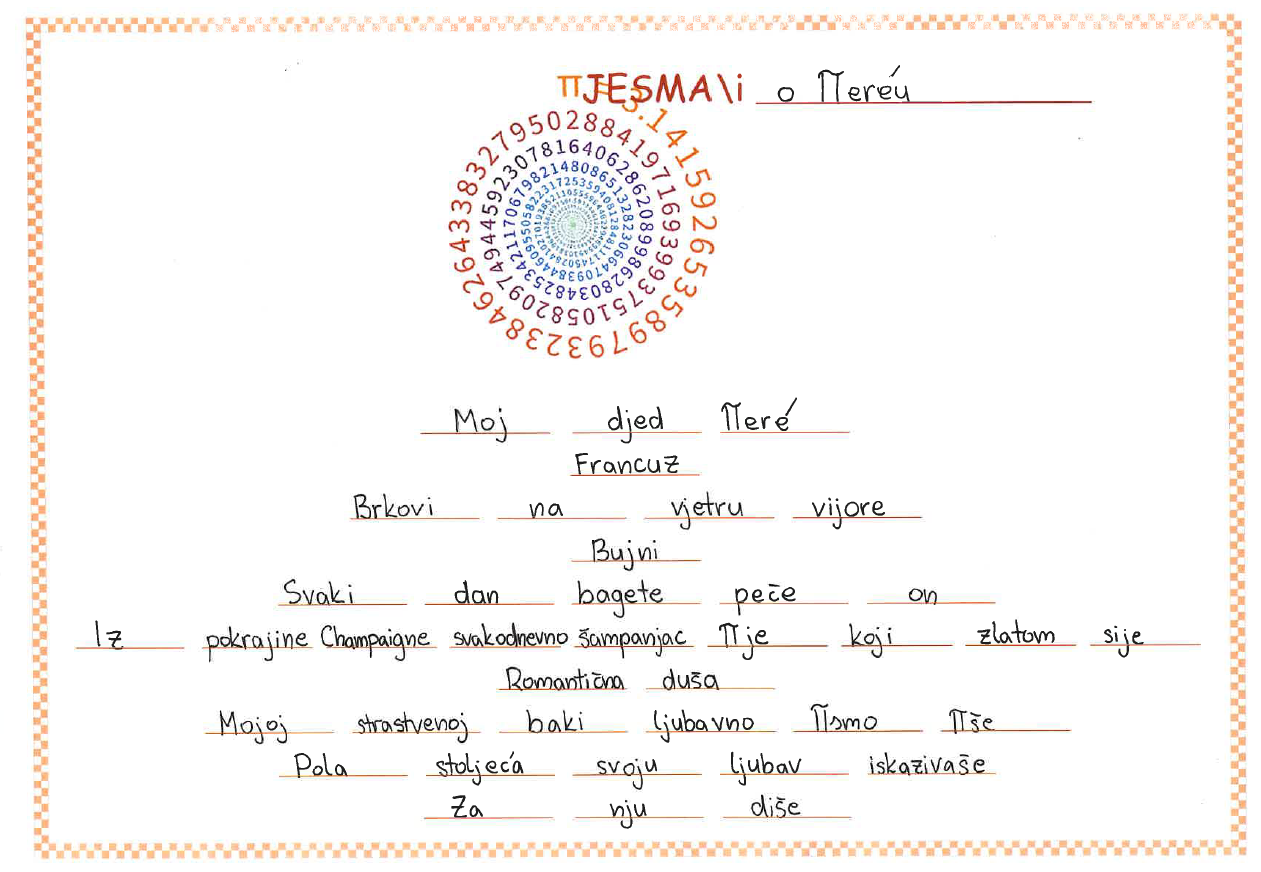 ΠJESMA\i o Πeréu
3.14159265358979323846264338327950288419716939937510582097494459230781640628620899862803482534211706798214808651
Moj djed Πeré
Francuz
Brkovi na vjetru vijore
Bujni
Svaki dan bagete peče on
Iz pokrajine Champaigne svakodnevno šampanjac Πje koji zlatom sije
Romantična duša
Mojoj strastvenoj baki ljubavno Πsmo Πše
Pola stoljeća svoju ljubav iskazivaše
Za nju diše